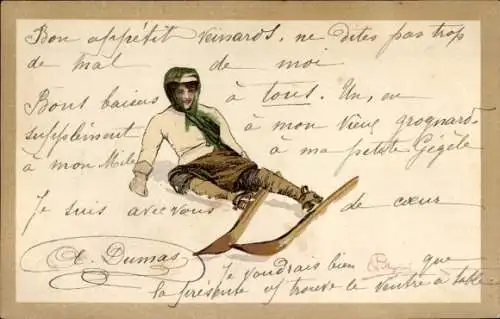 Bon appétit veinards, ne dites pas trop
de mal de moi
Bons baisers à tous. Un, en
supplément à mon vieux grognard
à mon Mile à ma petite Gégèle
Je suis avec vous de cœur
A. Dumas
Je voudrais bien que
la présente vs trouve le ventre à table